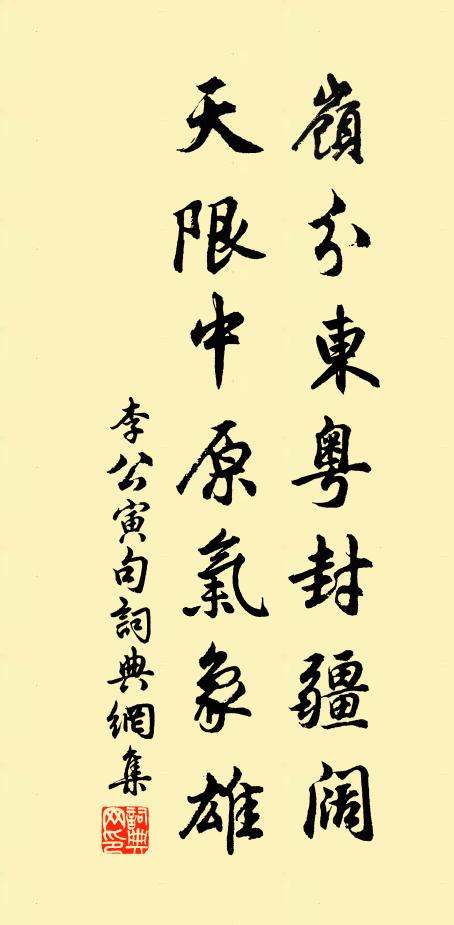 嶺分東粤封疆阔
天限中原氣象雄
李公寅句詞典網集
詞典
网印